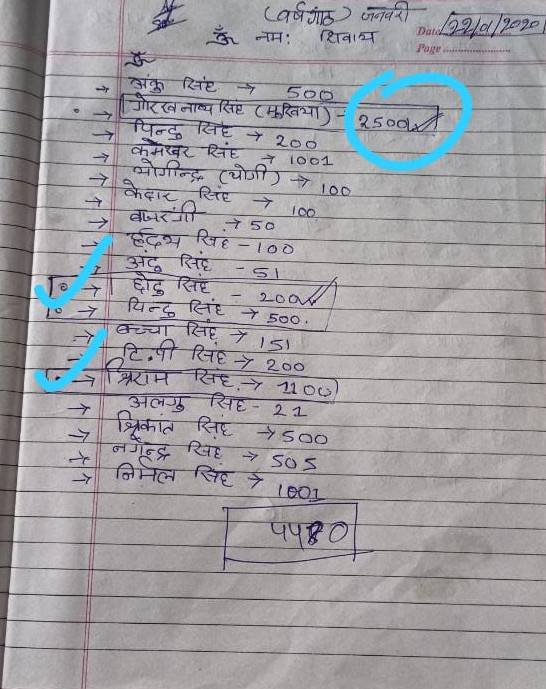 (वर्षगांठ) जनवरी
ॐ नमः शिवाय
Date 22/01/2020
Page
ॐ
→ अंकु सिंह → 500
→ गोरखनाथ सिंह (मुखिया) - 2500
→ पिन्टु सिंह → 200
→ कमेश्वर सिंह → 1001
→ योगीन्द्र (योगी) → 100
→ केदार सिंह → 100
→ बजरंगी → 50
→ ह्रदय सिंह - 100
→ अंटु सिंह - 51
→ छोटु सिंह - 200
→ पिन्टु सिंह → 500.
→ बच्चा सिंह → 151
→ टि.पी सिंह → 200
→ श्रिराम सिंह. → 1100
→ अलगु सिंह - 21
→ श्रिकांत सिंह → 500
→ नगेन्द्र सिंह → 505
→ निर्मल सिंह → 1001